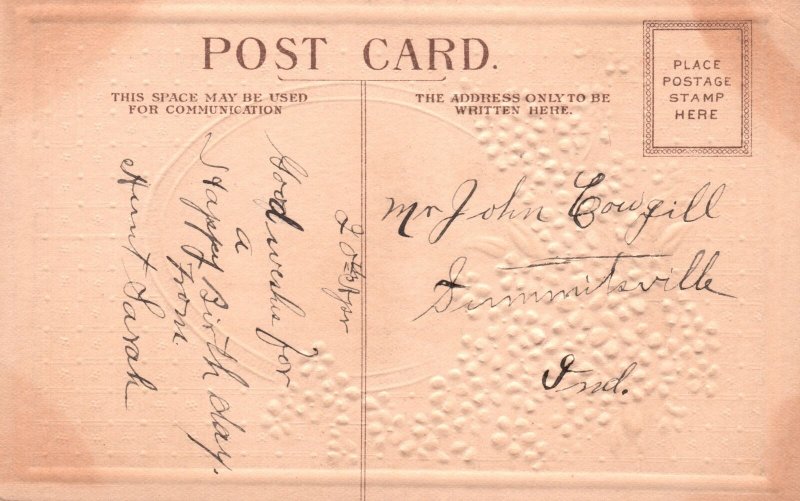 POST CARD.
THIS SPACE MAY BE USED
FOR COMMUNICATION
THE ADDRESS ONLY TO BE
WRITTEN HERE.
PLACE
POSTAGE
STAMP
HERE
20th Apr
Good wishes for
a
Happy Birth day.
From
Aunt Sarah
Mr John Cowgill
Summitsville
Ind.